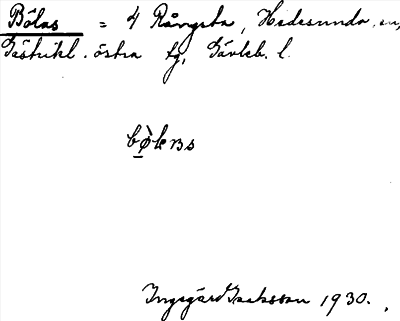 Bölas = 4 Rångsta, Hedesunda sn,
Gästrikl. östra tg, Gävleb. l.
Ingegärd Isaksson 1930.